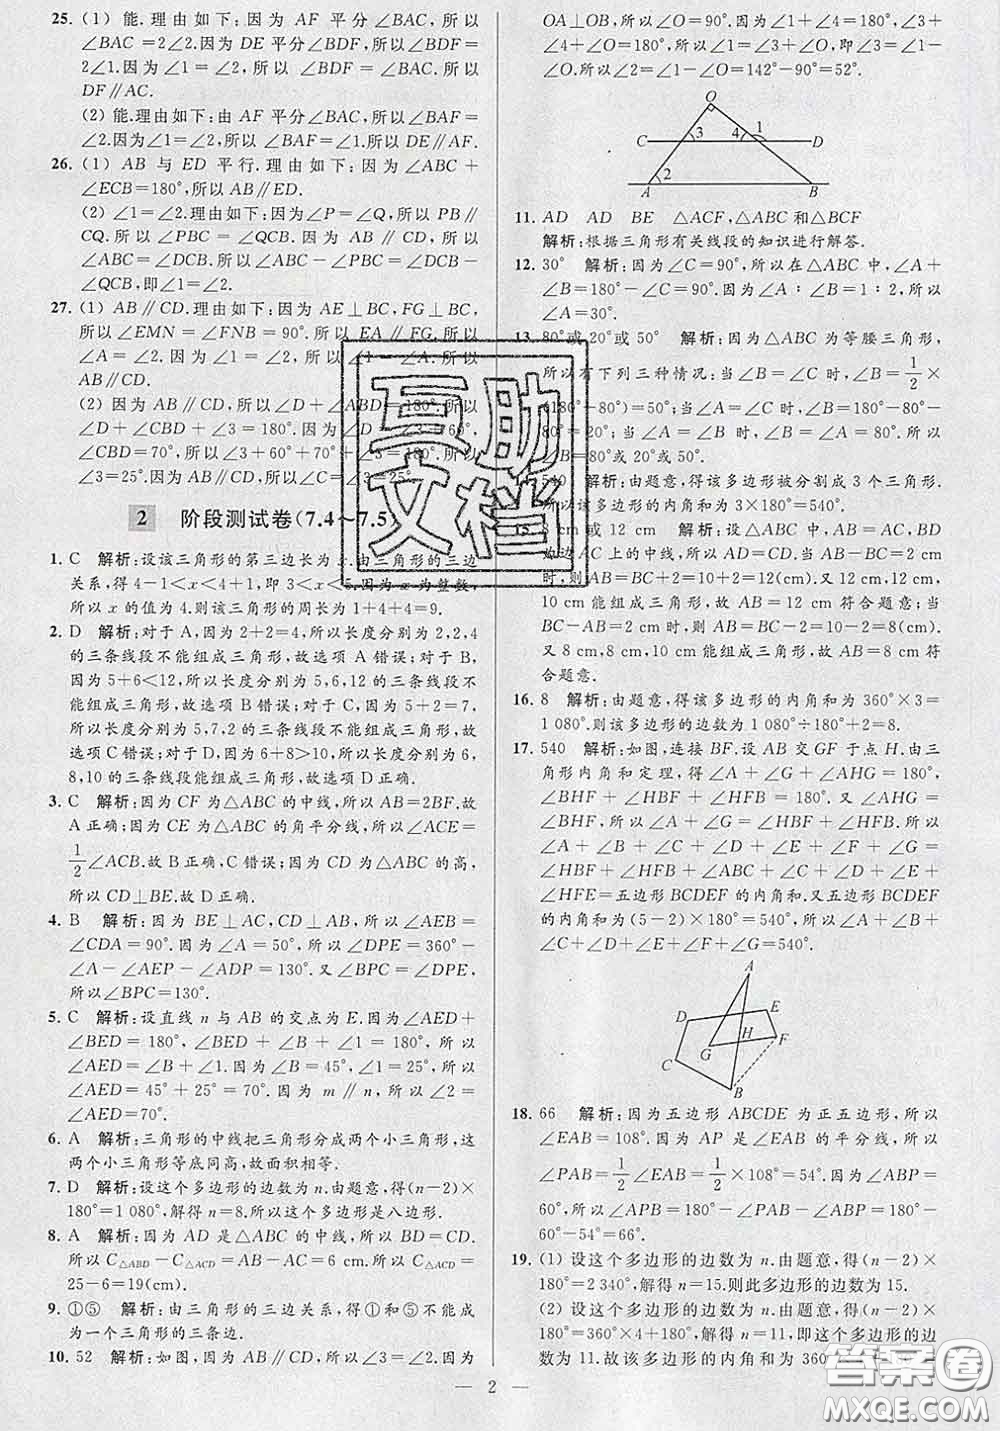 25. (1) 能.理由如下:因为 AF 平分∠BAC,所以
∠BAC=2∠2.因为 DE 平分∠BDF,所以∠BDF=
2∠1.因为∠1=∠2,所以∠BDF=∠BAC.所以
DF∥AC.
(2) 能.理由如下:由 AF 平分∠BAC,所以∠BAF=
∠2.因为∠1=∠2,所以∠BAF=∠1.所以 DE∥AF.
26. (1) AB 与 ED 平行.理由如下:因为∠ABC+
∠ECB=180°,所以 AB∥ED.
(2) ∠1=∠2.理由如下:因为∠P=∠Q,所以 PB∥
CQ.所以∠PBC=∠QCB.因为 AB∥CD,所以
∠ABC=∠DCB.所以∠ABC-∠PBC=∠DCB-
∠QCB,即∠1=∠2.
27. (1) AB∥CD.理由如下:因为 AE⊥BC,FG⊥BC,
所以∠EMN=∠FNB=90°.所以 EA∥FG.所以
∠A=∠2.因为∠1=∠2,所以∠1=∠A.所以
AB∥CD.
(2) 因为 AB∥CD,所以∠D+∠ABD=180°.所以
∠D+∠CBD+∠3=180°.因为∠D=∠3+60°,
∠CBD=70°,所以∠3+60°+70°+∠3=180°.所以
∠3=25°.因为 AB∥CD,所以∠C=∠3=25°.
2 阶段测试卷(7.4~7.5)
1. C 解析:设该三角形的第三边长为 x.由三角形的三边
关系,得 4-1<x<4+1,即 3<x<5.因为 x 为整数,
所以 x 的值为 4.则该三角形的周长为 1+4+4=9.
2. D 解析:对于 A,因为 2+2=4,所以长度分别为 2,2,4
的三条线段不能组成三角形,故选项 A 错误;对于 B,
因为 5+6<12,所以长度分别为 5,6,12 的三条线段不
能组成三角形,故选项 B 错误;对于 C,因为 5+2=7,
所以长度分别为 5,7,2 的三条线段不能组成三角形,故
选项 C 错误;对于 D,因为 6+8>10,所以长度分别为 6,
8,10 的三条线段能组成三角形,故选项 D 正确.
3. C 解析:因为 CF 为△ABC 的中线,所以 AB=2BF.故
A 正确;因为 CE 为△ABC 的角平分线,所以∠ACE=
1/2∠ACB.故 B 正确,C 错误;因为 CD 为△ABC 的高,
所以 CD⊥BE.故 D 正确.
4. B 解析:因为 BE⊥AC,CD⊥AB,所以∠AEB=
∠CDA=90°.因为∠A=50°,所以∠DPE=360°-
∠A-∠AEP-∠ADP=130°.又∠BPC=∠DPE,
所以∠BPC=130°.
5. C 解析:设直线 n 与 AB 的交点为 E.因为∠AED+
∠BED=180°,∠BED+∠B+∠1=180°,所以
∠AED=∠B+∠1.因为∠B=45°,∠1=25°,所以
∠AED=45°+25°=70°.因为 m∥n,所以∠2=
∠AED=70°.
6. A 解析:三角形的中线把三角形分成两个小三角形,这
两个小三角形等底同高,故面积相等.
7. D 解析:设这个多边形的边数为 n.由题意,得(n-2)×
180°=1 080°,解得 n=8.所以这个多边形是八边形.
8. A 解析:因为 AD 是△ABC 的中线,所以 BD=CD.
所以 C△ABD-C△ACD=AB-AC=6 cm.所以 C△ACD=
25-6=19(cm).
9. ①⑤ 解析:由三角形的三边关系,得①和⑤不能成
为一个三角形的三条边.
10. 52 解析:如图,因为 AB∥CD,所以∠3=∠2.因为
OA⊥OB,所以∠O=90°.因为∠1+∠4=180°,∠3+
∠4+∠O=180°,所以∠1=∠3+∠O,即∠3=∠1-
∠O.所以∠2=∠1-∠O=142°-90°=52°.
O
C 3 4 1 D
2
A B
11. AD AD BE △ACF,△ABC 和△BCF
解析:根据三角形有关线段的知识进行解答.
12. 30° 解析:因为∠C=90°,所以在△ABC 中,∠A+
∠B=180°-∠C=90°.因为∠A∶∠B=1∶2,所以
∠A=30°.
13. 80°或 20°或 50° 解析:因为△ABC 为等腰三角形,
所以有下列三种情况:当∠B=∠C 时,∠B=1/2×
(180°-80°)=50°;当∠A=∠C 时,∠B=180°-80°-
80°=20°;当∠A=∠B 时,∠B=∠A=80°.所以
∠B=80°或 20°或 50°.
540 解析:由题意,得该多边形被分割成 3 个三角形.
所以该多边形的内角和为 3×180°=540°.
15. 8 cm 或 12 cm 解析:设在△ABC 中,AB=AC,BD
为边 AC 上的中线,所以 AD=CD.当 AB-BC=2 cm
时,则 AB=BC+2=10+2=12(cm).又 12 cm,12 cm,
10 cm 能组成三角形,故 AB=12 cm 符合题意;当
BC-AB=2 cm 时,则 AB=BC-2=10-2=8(cm).
又 8 cm,8 cm,10 cm 能组成三角形,故 AB=8 cm 符
合题意.
16. 8 解析:由题意,得该多边形的内角和为 360°×3=
1 080°.则该多边形的边数为 1 080°÷180°+2=8.
17. 540 解析:如图,连接 BF.设 AB 交 GF 于点 H.由三
角形内角和定理,得∠A+∠G+∠AHG=180°,
∠BHF+∠HBF+∠HFB=180°.又∠AHG=
∠BHF,所以∠A+∠G=∠HBF+∠HFB.所以
∠A+∠B+∠C+∠D+∠E+∠F+∠G=
∠HBF+∠HFB+∠ABC+∠C+∠D+∠E+
∠HFE=五边形 BCDEF 的内角和.又五边形 BCDEF
的内角和为(5-2)×180°=540°,所以∠A+∠B+
∠C+∠D+∠E+∠F+∠G=540°.
A
D E
H F
G
C
B
18. 66 解析:因为五边形 ABCDE 为正五边形,所以
∠EAB=108°.因为 AP 是∠EAB 的平分线,所以
∠PAB=1/2∠EAB=1/2×108°=54°.因为∠ABP=
60°,所以∠APB=180°-∠PAB-∠ABP=180°-
60°-54°=66°.
19. (1) 设这个多边形的边数为 n.由题意,得(n-2)×
180°=2 340°,解得 n=15.则此多边形的边数为 15.
(2) 设这个多边形的边数为 n.由题意,得(n-2)×
180°=360°×4+180°,解得 n=11,即这个多边形的边
数为 11.故该多边形的内角和为 360°
— 2 —
互助
文档
答案圈
MXQE.COM